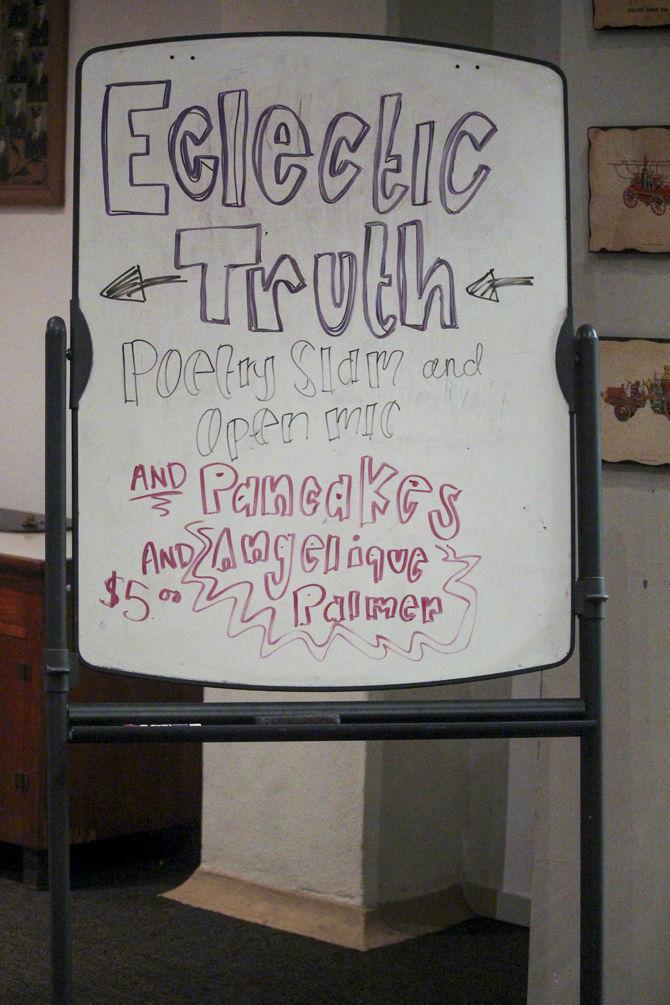 Eclectic
Truth
Poetry Slam and
Open mic
AND Pancakes
AND Angelique
$5.00 Palmer